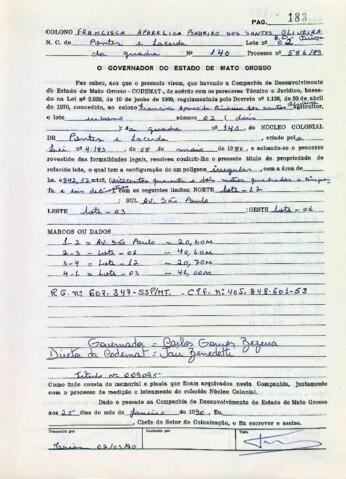 PAG. 183
COLONO FRANCISCA APARECIDA PINHEIRO DOS SANTOS OLIVEIRA
N. C. de Pontes e Lacerda Lote nº 02
da quadra Nº 140 Processo nº 586/89
O GOVERNADOR DO ESTADO DE MATO GROSSO
Faz saber, aos que o presente virem, que havendo a Companhia de Desenvolvimento
do Estado de Mato Grosso - CODEMAT, de acordo com os pareceres Técnico e Jurídico, basea-
do na Lei nº 2.933, de 10 de junho de 1969, regulamentada pelo Decreto nº 1.138, de 20 de abril
de 1970, concedido, ao colono Francisca Aparecida Pinheiro dos Santos Oliveira agricultor,
o lote urbano nº 02 (dois
): da quadra nº 140 do NÚCLEO COLONIAL
DE Pontes e Lacerda, criado pela
Lei nº 4.193, de 08 de maio de 1980, e achando-se o processo
revestido das formalidades legais, resolveu conferir-lhe o presente título de propriedade do
referido lote, o qual tem a configuração de um polígono irregular, com a área de
e dois com os seguintes limites: NORTE lote-12
: SUL Av. São Paulo
LESTE lote-03 :OESTE lote-01
MARCOS OU DADOS
1-2 = Av. São Paulo = 20,60M
2-3 - Lote-01 = 40,60M
3-4 = Lote-12 = 20,70M
4-1 = Lote-03 = 41,00M
R.G. nº 602.347-SSP/MT. - C.P.F. nº 405.848.601-53
Governador = Carlos Gomes Bezerra
Diretor da Codemat = Jair Benedetti
Título nº 009095
Como tudo consta do memorial e planta que ficam arquivados nesta Companhia, juntamente
com o processo de medição e loteamento do referido Núcleo Colonial.
Dado e passado na Companhia de Desenvolvimento do Estado de Mato Grosso
aos 25 dias do mês de Janeiro de 1990, Eu,
, Chefe do Setor de Colonização, o fiz escrever e assino.
Transcrito por
Conferido por
Visto
02/03/90